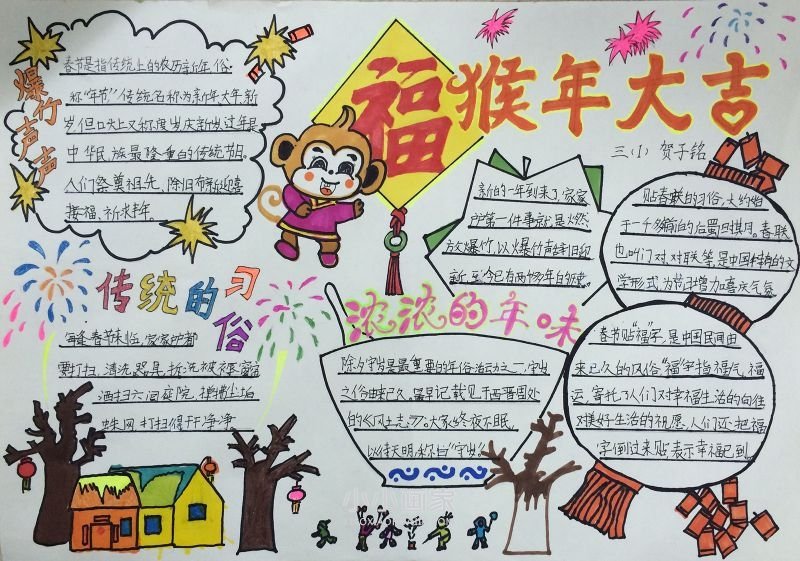 福
猴年大吉
三(1) 贺子铭
爆竹声声
春节是指传统上的农历新年,俗
称"年节",传统名称为新年、大年、新
岁,但口头上又称度岁、庆新岁、过年是
中华民族最隆重的传统节日。
人们祭奠祖先、除旧布新、迎喜
接福、祈求丰年。
新的一年到来了,家家
户第一件事就是燃
放爆竹,以爆竹声辞旧迎
新,至今已有两千多年的历史。
贴春联的习俗,大约始
于一千多年前的后蜀时期。春联
也叫门对、对联等,是中国特有的文
学形式,为节日增加喜庆气氛
传统的习俗
每逢春节来临,家家户户都
要打扫,清洗器具,拆洗被褥窗帘
洒扫六闾庭院,掸拂尘垢
蛛网,打扫得干干净净。
浓浓的年味
除夕守岁是最重要的年俗活动之一,守岁
之俗由来已久,最早记载见于西晋周处
的《风土志》:大家终夜不眠,
以待天明,称曰"守岁"
春节贴"福"字,是中国民间由
来已久的风俗"福"字指福气、福
运,寄托了人们对幸福生活的向往
对美好生活的祝愿,人们还把福
字倒过来贴,表示幸福已到
小小画家